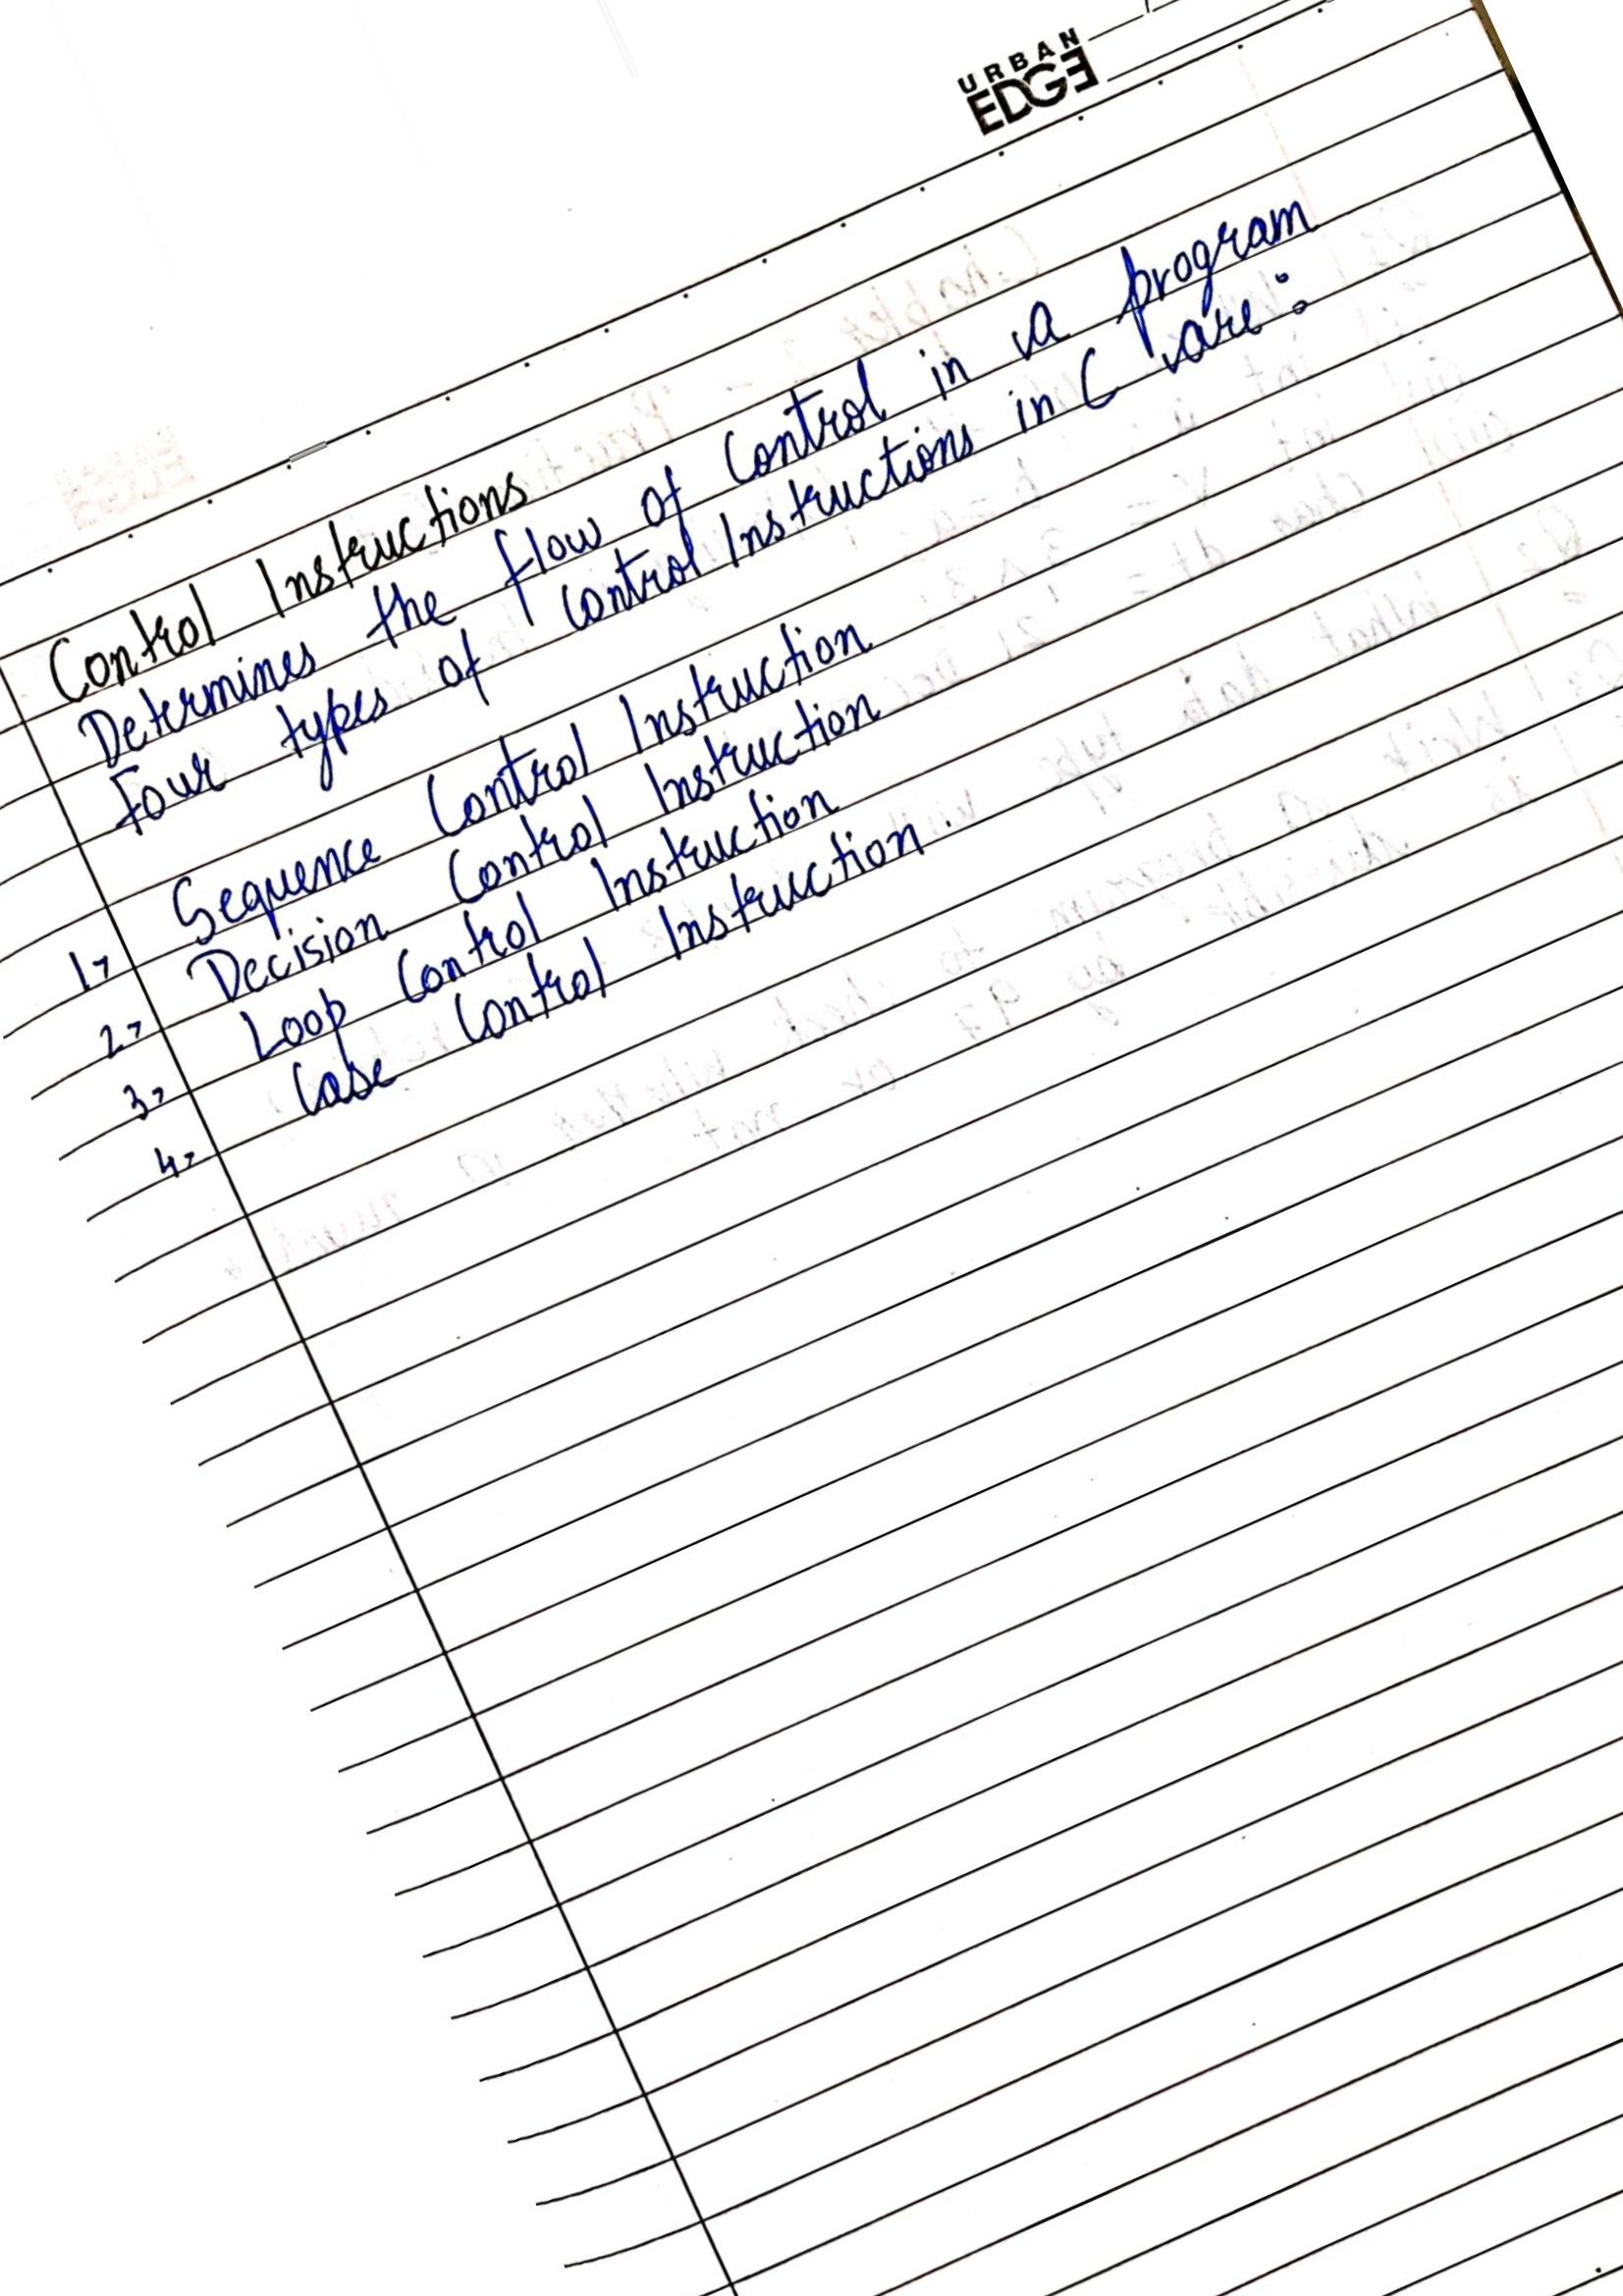 URBAN
EDGE
Control Instructions
Determines the flow of Control in a program
Four types of Control Instructions in C are :
1> Sequence Control Instruction
2> Decision Control Instruction
3> Loop Control Instruction
4> Case Control Instruction.